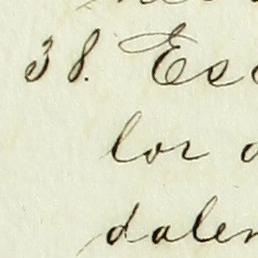 38. Es
lor
dalen